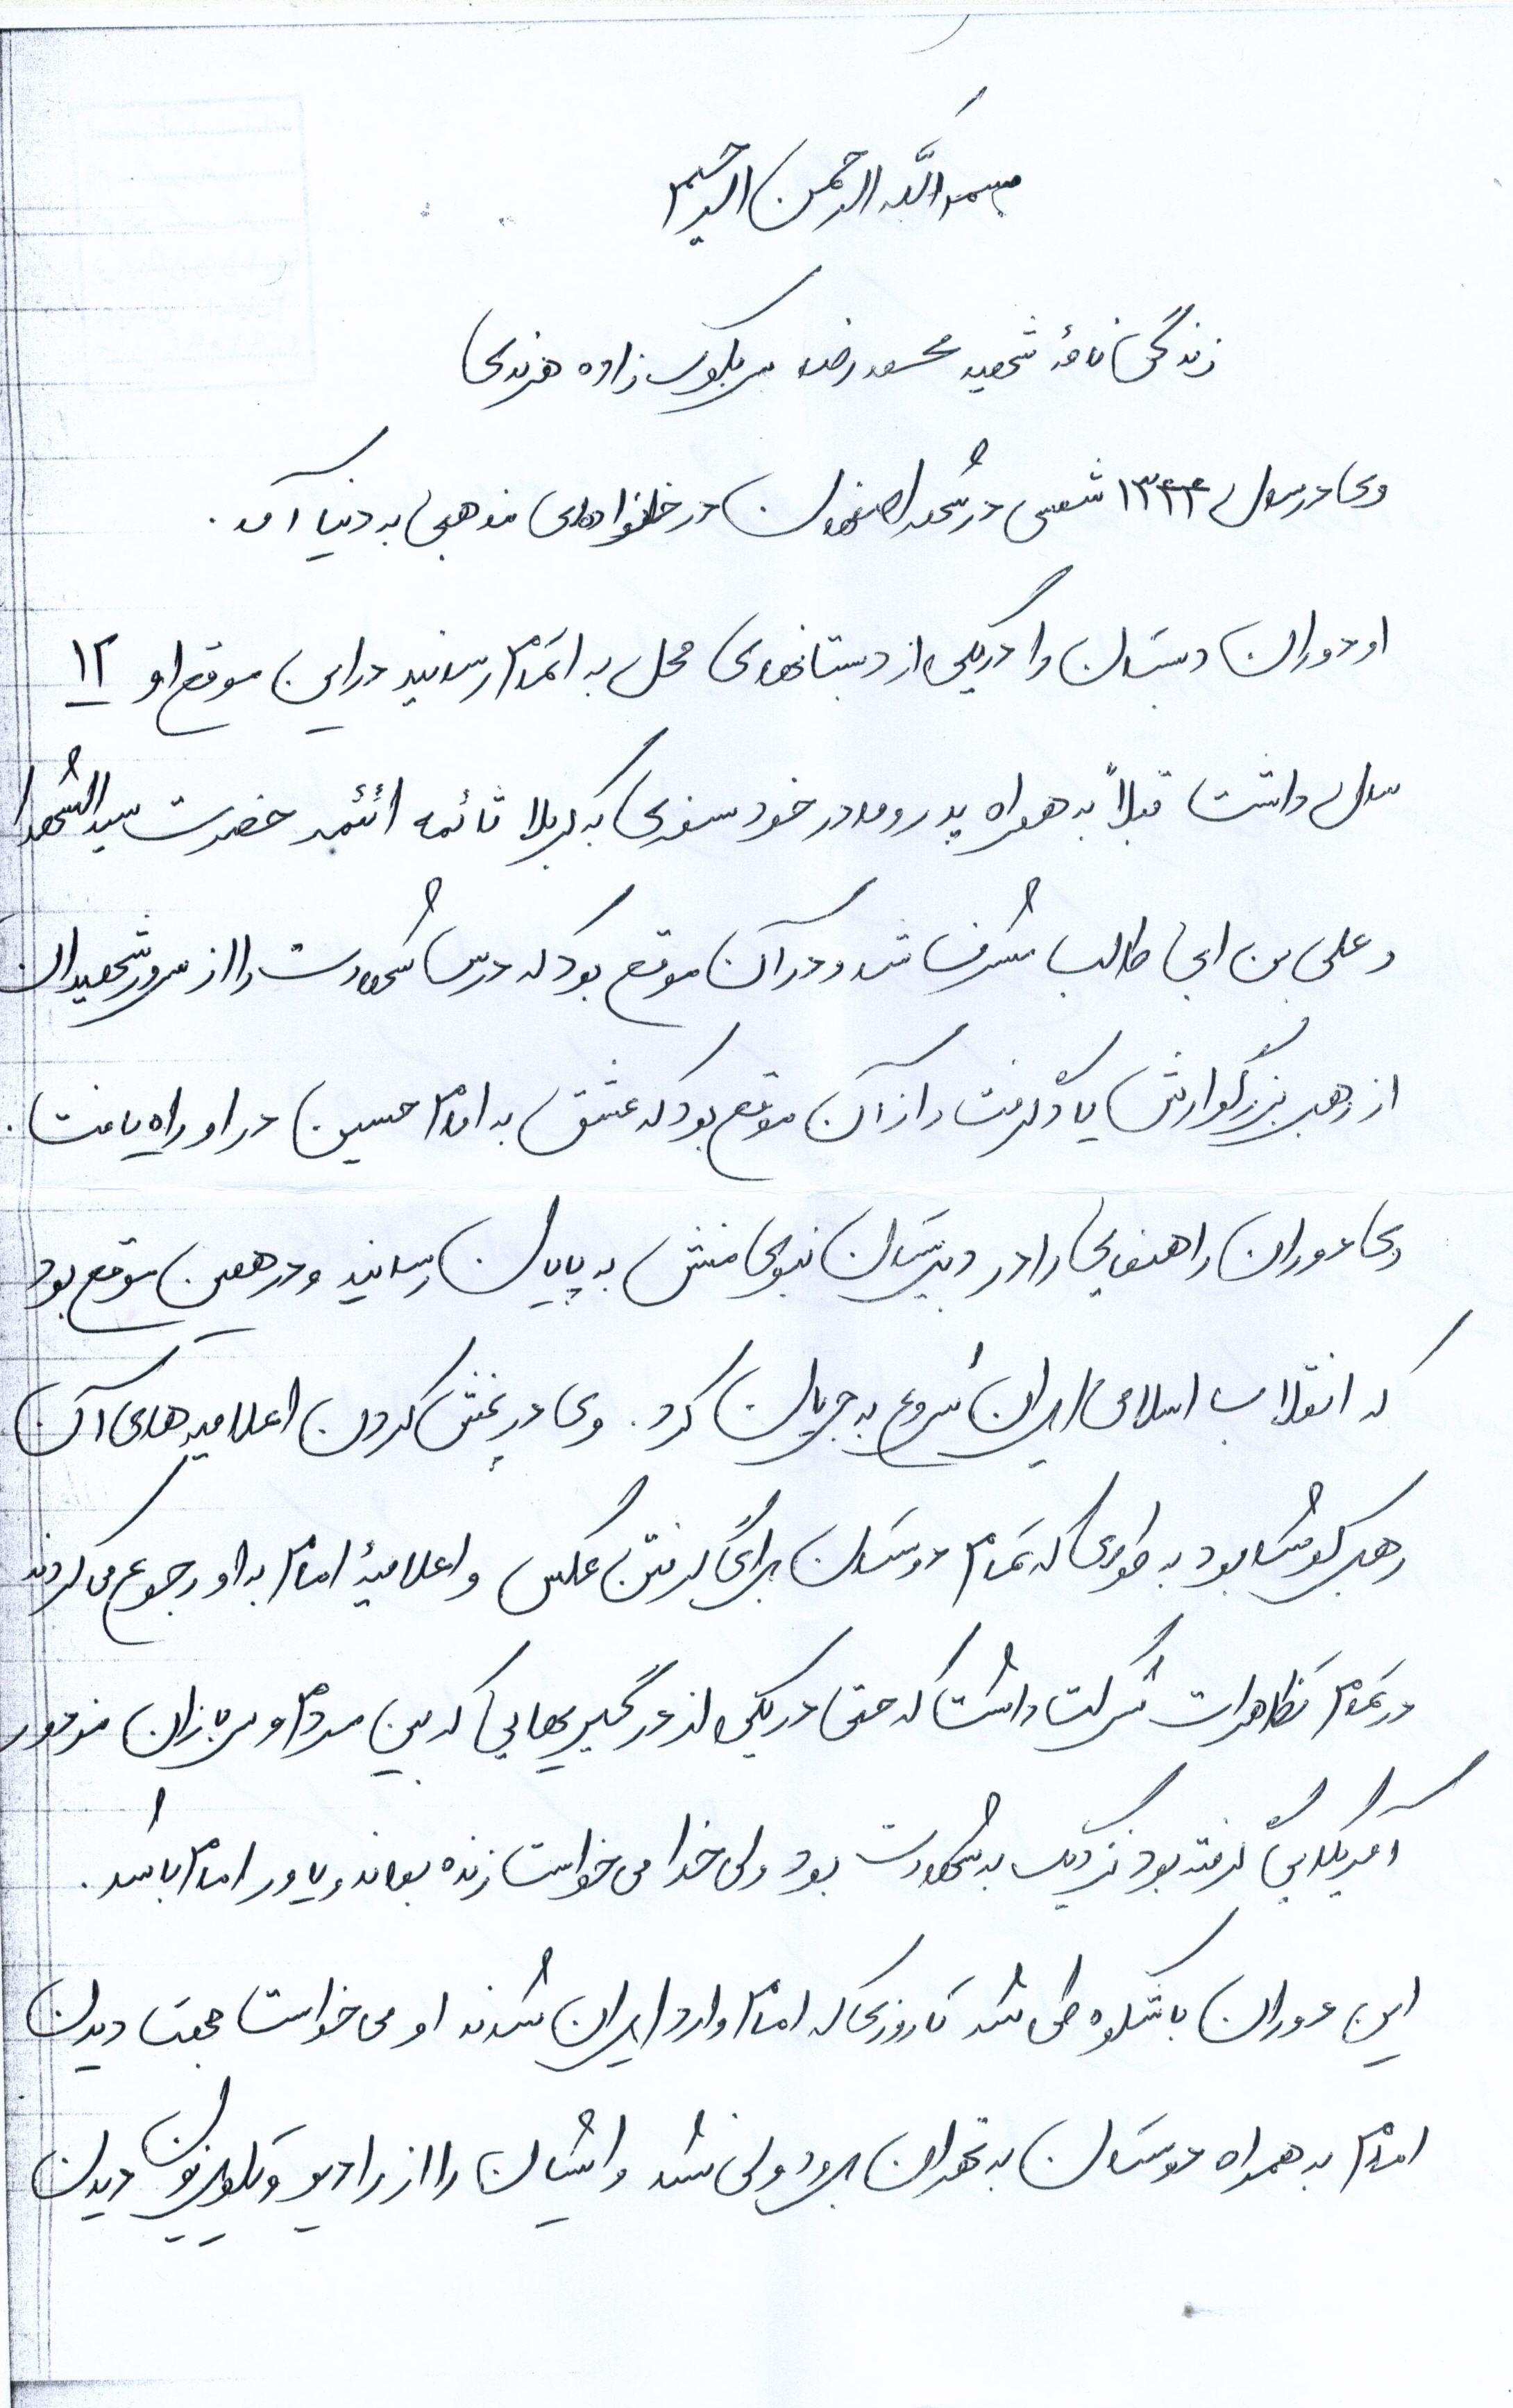 بسم الله الرحمن الرحیم
زندگی نامهٔ شهید محمد رضا سربلوک زاده هرندی
وی در سال ۱۳۴۴ شمسی در شهر اصفهان در خانواده‌ای مذهبی به دنیا آمد.
او دوران دبستان را در یکی از دبستانهای محل به اتمام رسانید در این موقع او ۱۲
سال داشت قبلاً به همراه پدر و مادر خود سفری به کربلا ائمه حضرت سیدالشهدا
و علی بن ابی طالب مشرف شد و در آن موقع بود که درس شهادت را از سرور شهیدان
از رهبر بزرگوارش یاد گرفت و از آن موقع بود که عشق به امام حسین در او راه یافت.
وی دوران راهنمایی را در دبیرستان نیوی منش به پایان رسانید و در همین موقع بود
که انقلاب اسلامی ایران شروع به جریان کرد. وی در پخش کردن اعلامیه های آن
رهبر کوشا بود به طوری که تمام دوستان برای گرفتن عکس و اعلامیهٔ امام به او رجوع می کردند
در تمام تظاهرات شرکت داشت که حتی در یکی از درگیریهایی که بین مردم و سربازان مزدور
آمریکایی گرفته بود نزدیک به شهادت بود ولی خدا می خواست زنده بماند و یاور امام باشد.
این دوران باشکوه طی شد تا روزی که امام وارد ایران شدند او می خواست جهت دیدن
امام به همراه دوستان به تهران برود ولی نشد و ایشان را از رادیو و تلویزیون دیدن